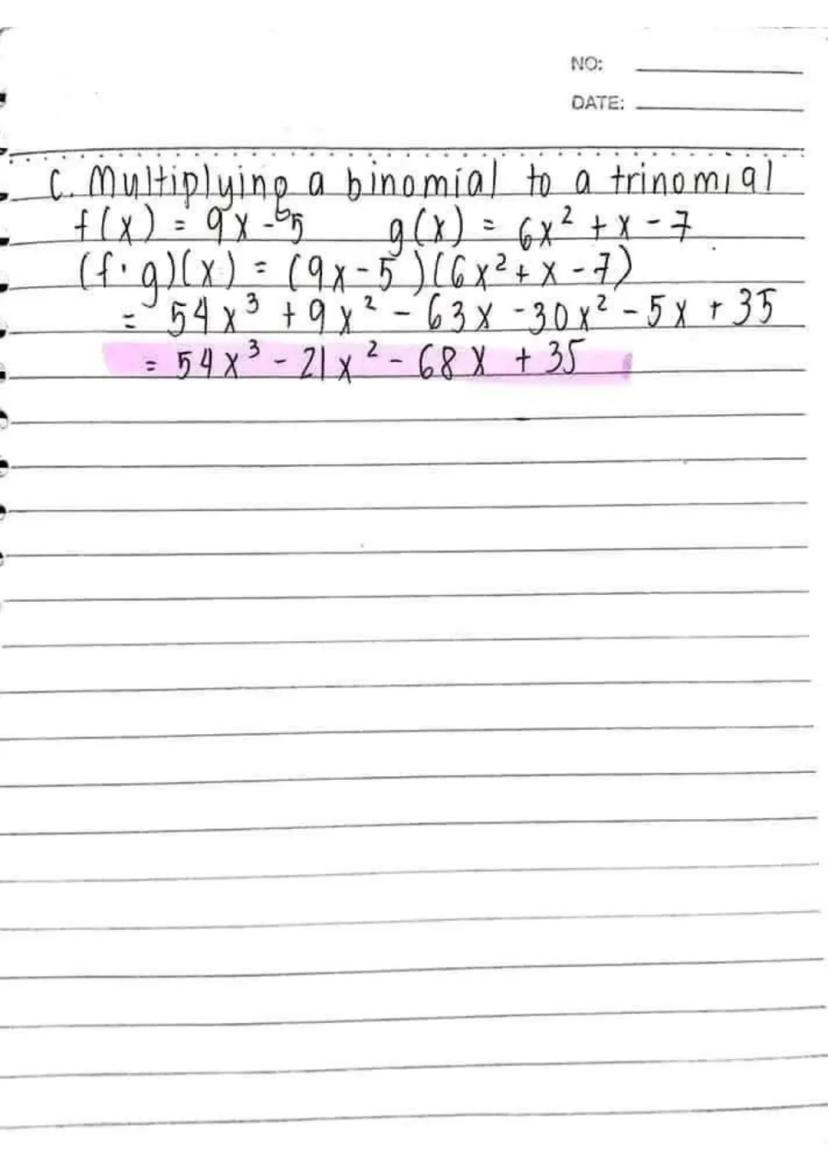 NO:
DATE:
C. Multiplying a binomial to a trinomial
f(x) = 9x - 5 g(x) = 6x² + x - 7
(f · g)(x) = (9x - 5)(6x² + x - 7)
= 54x³ + 9x² - 63x - 30x² - 5x + 35
= 54x³ - 21x² - 68x + 35